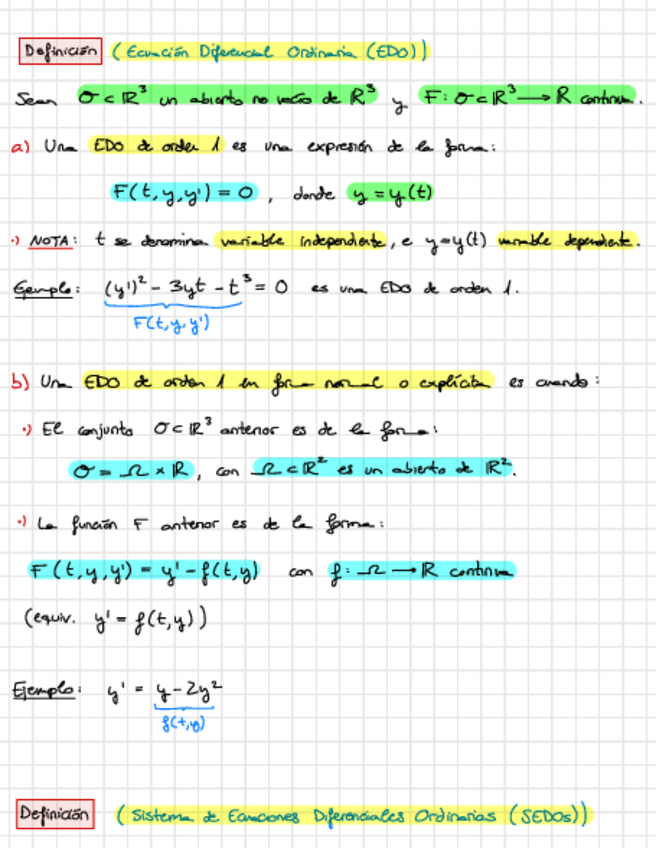 Definición (Ecuación Diferencial Ordinaria (EDO))
Sean O ⊂ ℝ³ un abierto no vacío de ℝ³ y F: O ⊂ ℝ³ ⟶ ℝ continua.
a) Una EDO de orden 1 es una expresión de la forma:
F(t, y, y') = 0 , donde y = y(t)
·) NOTA: t se denomina variable independiente, e y=y(t) variable dependiente.
Ejemplo: (y')² - 3yt - t³ = 0 es una EDO de orden 1.
F(t, y, y')
b) Una EDO de orden 1 en forma normal o explícita es cuando:
·) El conjunto O ⊂ ℝ³ anterior es de la forma:
O = Ω × ℝ, con Ω ⊂ ℝ² es un abierto de ℝ².
·) La función F anterior es de la forma:
F(t, y, y') = y' - f(t, y) con f: Ω ⟶ ℝ continua
(equiv. y' = f(t, y))
Ejemplo: y' = y - 2y²
f(t, y)
Definición (Sistema de Ecuaciones Diferenciales Ordinarias (SEDOs))